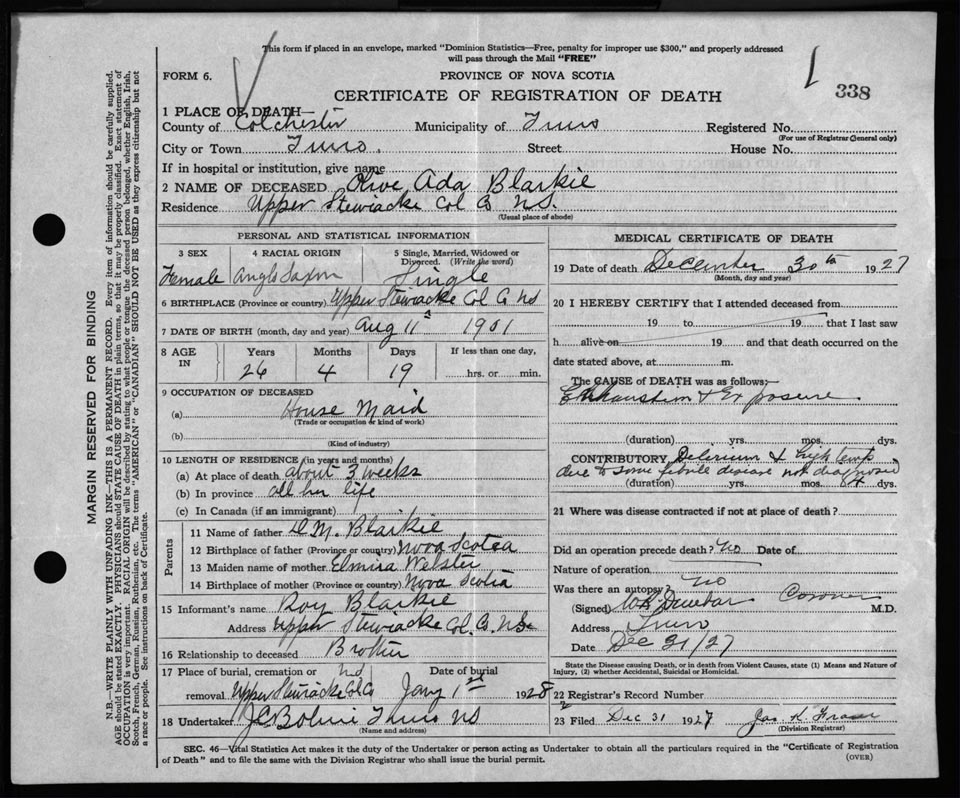 This form if placed in an envelope, marked "Dominion Statistics—Free, penalty for improper use $300," and properly addressed
will pass through the Mail "FREE"
FORM 6.
PROVINCE OF NOVA SCOTIA
338
CERTIFICATE OF REGISTRATION OF DEATH
1 PLACE OF DEATH—
County of Colchester Municipality of Truro Registered No.
(For use of Registrar General only)
City or Town Truro. Street House No.
If in hospital or institution, give name
2 NAME OF DECEASED Olive Ada Blaikie
Residence Upper Stewiacke Col Co NS.
(Usual place of abode)
PERSONAL AND STATISTICAL INFORMATION
3 SEX 4 RACIAL ORIGIN 5 Single, Married, Widowed or Divorced. (Write the word)
Female Anglo Saxon Single
6 BIRTHPLACE (Province or country) Upper Stewiacke Col Co NS
7 DATE OF BIRTH (month, day and year) Aug 11 1901
8 AGE IN Years Months Days If less than one day,
26 4 19 hrs. or min.
9 OCCUPATION OF DECEASED
(a) House Maid
(Trade or occupation or kind of work)
(b)
(Kind of industry)
10 LENGTH OF RESIDENCE (in years and months)
(a) At place of death about 3 weeks
(b) In province all her life
(c) In Canada (if an immigrant)
Parents
11 Name of father D M. Blaikie
12 Birthplace of father (Province or country) Nova Scotia
13 Maiden name of mother Elmira Webster
14 Birthplace of mother (Province or country) Nova Scotia
15 Informant's name Roy Blaikie
Address Upper Stewiacke Col. Co. NS
16 Relationship to deceased Brother
17 Place of burial, cremation or removal Date of burial
Upper Stewiacke Col Co Jany 1st 1928
18 Undertaker Truro NS
(Name and address)
MEDICAL CERTIFICATE OF DEATH
19 Date of death December 30th 1927
(Month, day and year)
20 I HEREBY CERTIFY that I attended deceased from
19 to 19 that I last saw
h alive on 19 and that death occurred on the
date stated above, at m.
The CAUSE of DEATH was as follows:—
Exhaustion & Exposure
(duration) yrs. mos. dys.
CONTRIBUTORY Delirium & high temp
due to some febrile disease not diagnosed
(duration) yrs. mos. 4 dys.
21 Where was disease contracted if not at place of death?
Did an operation precede death? no Date of
Nature of operation
Was there an autopsy? no
(Signed) Dunbar Coroner M.D.
Address Truro
Date Dec 31/27
State the Disease causing Death, or in death from Violent Causes, state (1) Means and Nature of
Injury, (2) whether Accidental, Suicidal or Homicidal.
22 Registrar's Record Number
23 Filed Dec 31 1927 Jas. K. Fraser
(Division Registrar)
SEC. 46—Vital Statistics Act makes it the duty of the Undertaker or person acting as Undertaker to obtain all the particulars required in the "Certificate of Registration
of Death" and to file the same with the Division Registrar who shall issue the burial permit.
(OVER)
MARGIN RESERVED FOR BINDING
N.B.—WRITE PLAINLY WITH UNFADING INK—THIS IS A PERMANENT RECORD. Every item of information should be carefully supplied.
AGE should be stated EXACTLY. PHYSICIANS should STATE CAUSE OF DEATH in plain terms, so that it may be properly classified. Exact statement of
OCCUPATION is very important. RACIAL ORIGIN will be described by stating to what people or tongue the deceased person belonged, whether English, Irish,
Scotch, French, German, Russian, Ruthenian, etc. The terms "AMERICAN" or "CANADIAN" SHOULD NOT BE USED as they express citizenship but not
a race or people. See instructions on back of Certificate.